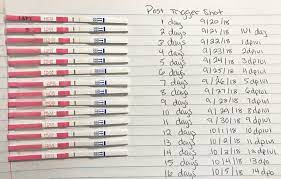 Post Trigger Shot
1 days 9/20/18
2 days 9/21/18 IUI day
3 days 9/22/18 1dpiui
4 days 9/23/18 2dpiui
5 days 9/24/18 3dpiui
6 days 9/25/18 4dpiui
7 days 9/26/18 5dpiui
8 days 9/27/18 6dpiui
9 days 9/28/18 7dpiui
10 days 9/29/18 8dpiui
11 days 9/30/18 9dpiui
12 days 10/1/18 10dpiui
13 days 10/2/18 11dpiui
14 days
15 days 10/4/18 13dpo
16 days 10/5/18 14dpo